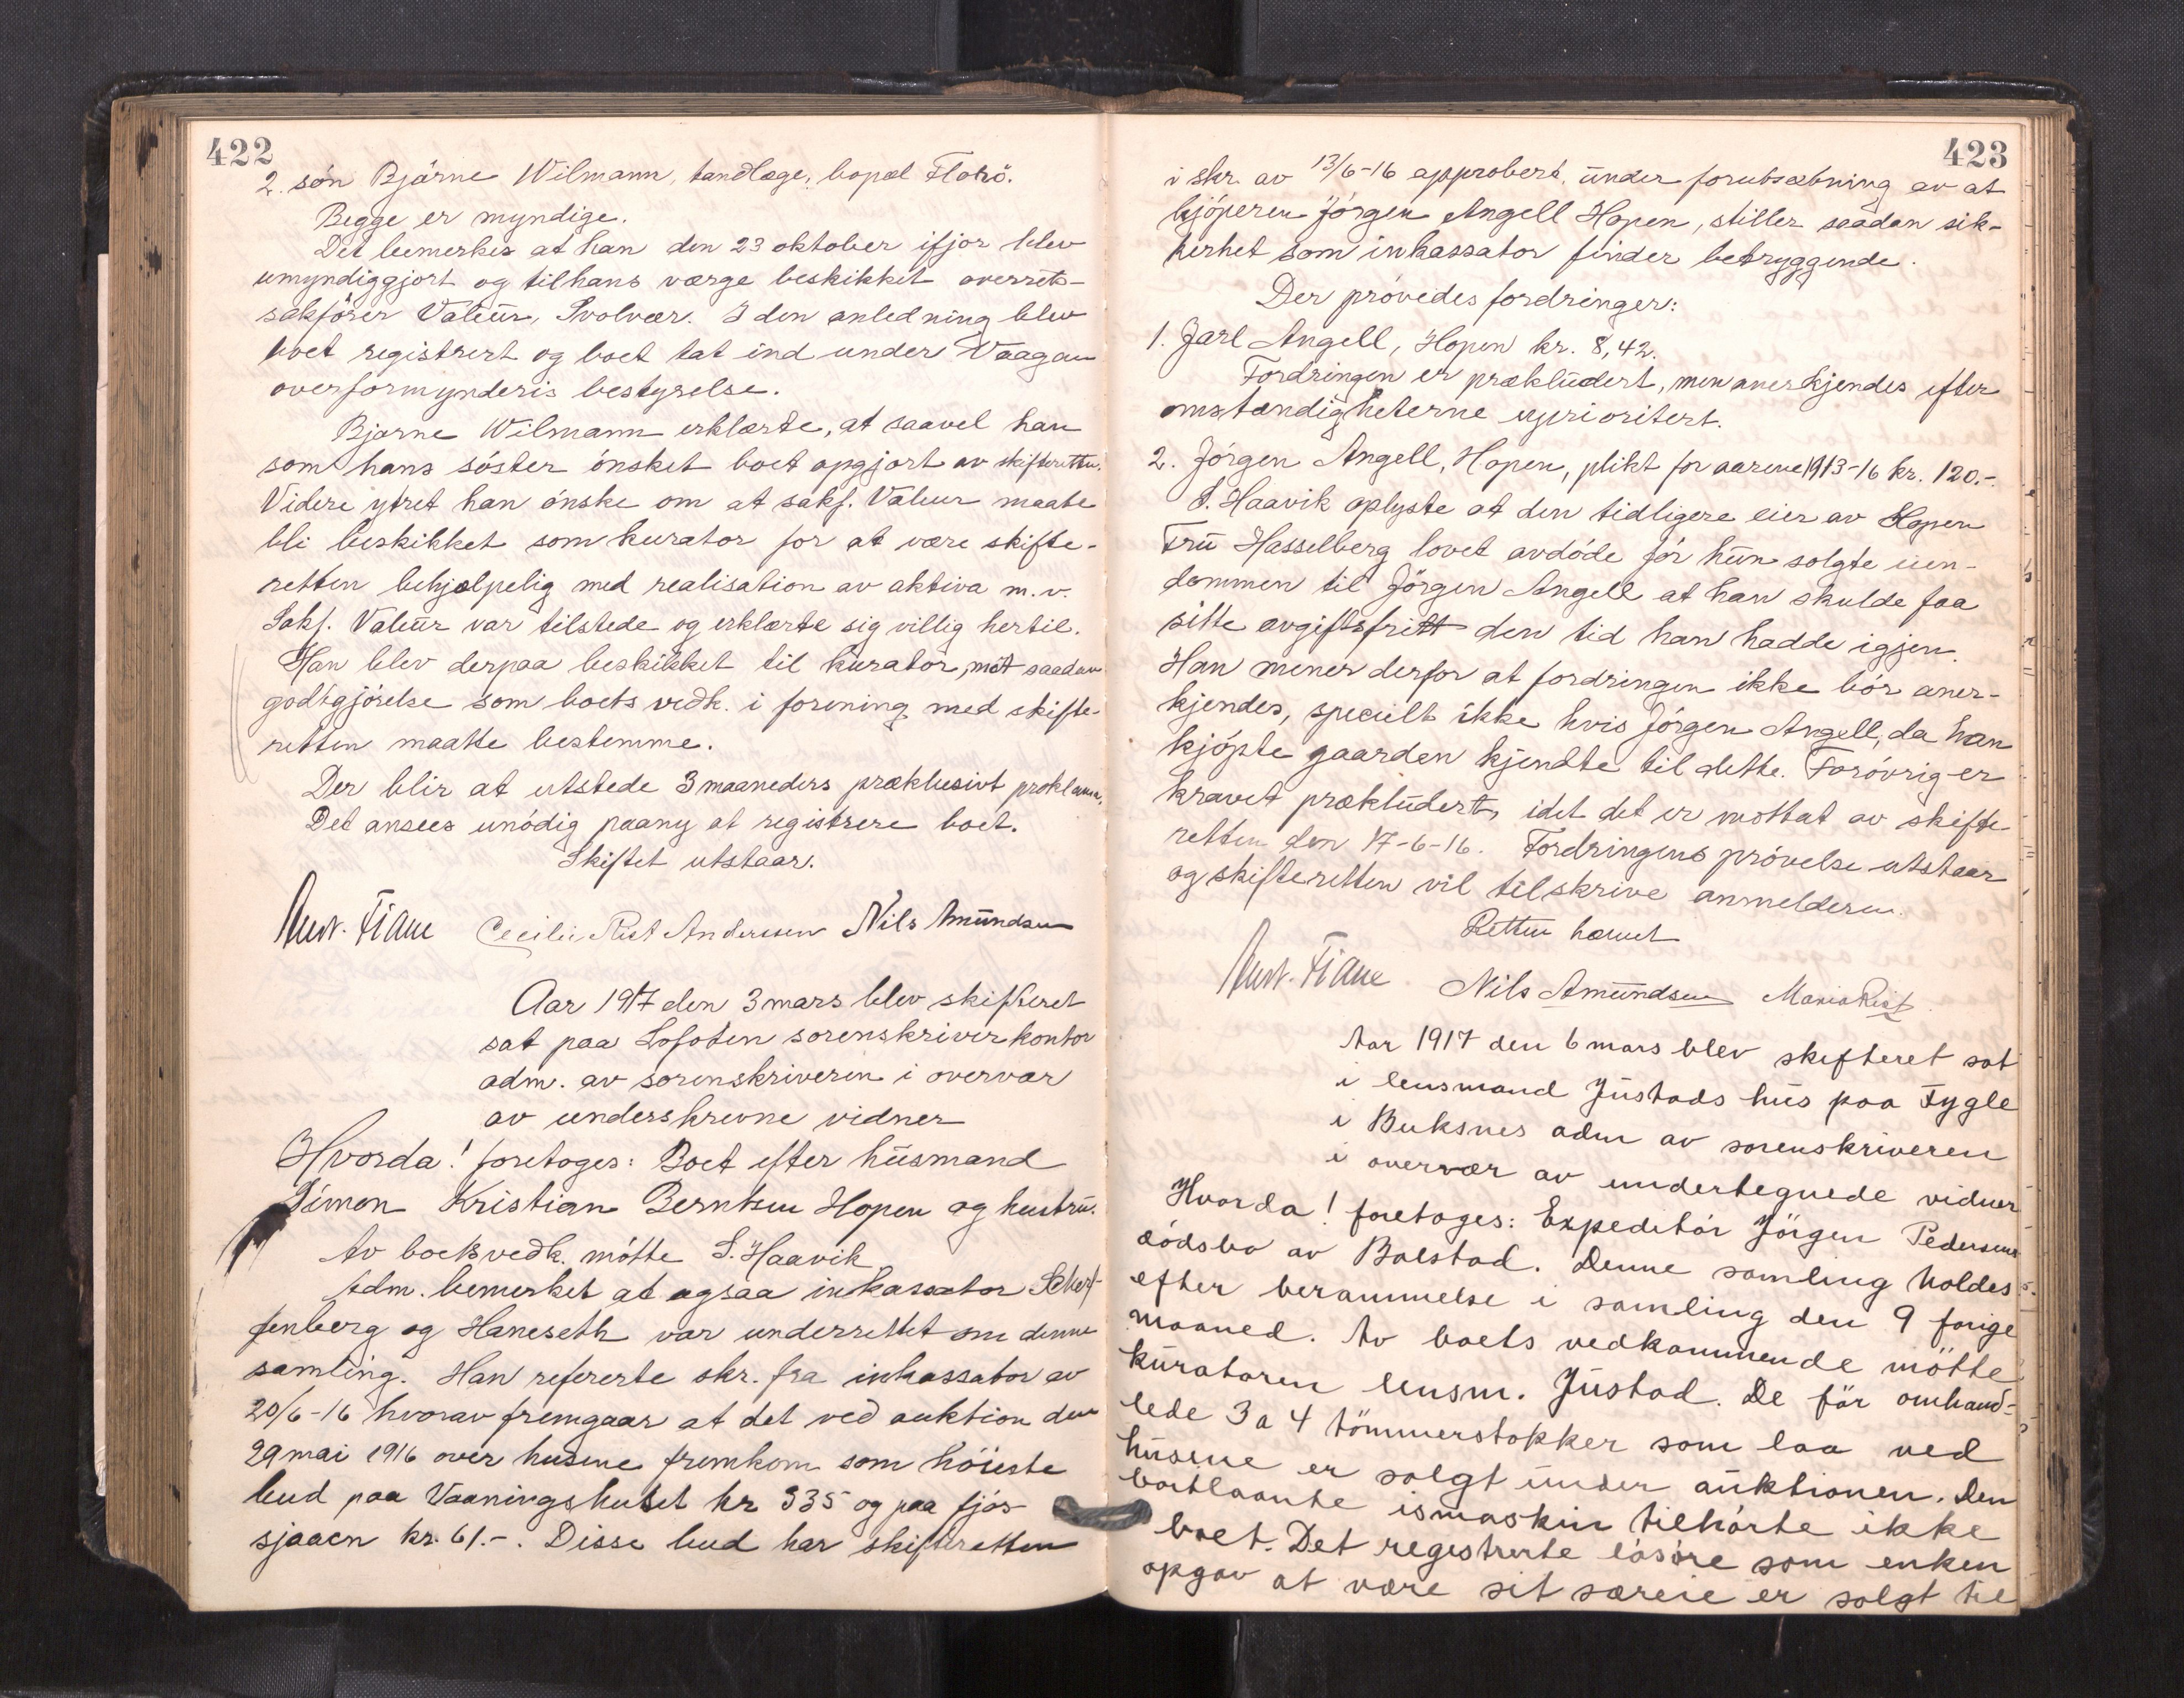 422
2. søn Bjarne Wilmann, tandlæge, bopæl Florö.
Begge er myndige.
Det bemerkes at han den 23 oktober ifjor blev
umyndiggjort og til hans værge beskikket overrets-
sakfører Valeur, Svolvær. I den anledning blev
boet registrert og boet tat ind under Vaagan
overformynderis bestyrelse.
Bjarne Wilmann erklærte, at saavel han
som hans søster ønsket boet opgjort av skifteretten.
Videre ytret han ønske om at sakf. Valeur maatte
bli beskikket som kurator for at være skifte-
retten behjælpelig med realisation av aktiva m.v.
Sakf. Valeur var tilstede og erklærte sig villig hertil.
Han blev derpaa beskikket til kurator, mot saadan
godtgjørelse som boets vedk. i forening med skifte-
retten maatte bestemme.
Der blir at utstede 3 maaneders præklusivt proklama.
Det ansees unödig paany at registrere boet.
Skiftet utstaar.
Cecilie Rist Andersen Nils Amundsen
Aar 1917 den 3 mars blev skifteret
sat paa Lofoten sorenskriverkontor
adm. av sorenskriveren i overvær
av underskrevne vidner
Hvorda! foretoges: Boet efter husmand
Simon Kristian Berntsen Hopen og hustru.
Av boets vedk. mötte S. Haavik
Adm. bemerket at ogsaa inkassator Schef-
fenberg og Haneseth var underrettet om denne
samling. Han refererte skr. fra inkassator av
20/6-16 hvorav fremgaar at det ved auktion den
29 mai 1916 over husene fremkom som höieste
bud paa Vaaningshuset kr 335 og paa fjös-
sjaaen kr. 61.-. Disse bud har skifteretten
423
i skr. av 13/6-16 approbert under forutsætning av at
kjöperen Jörgen Angell Hopen, stiller saadan sik-
kerhet som inkassator finder betryggende.
Der prövedes fordringer:
1. Jarl Angell, Hopen kr. 8,42.
Fordringen er prækludert, men anerkjendes efter
omstændigheterne uprioritert.
2. Jörgen Angell, Hopen, plikt for aarene 1913-16 kr. 120.-
S. Haavik oplyste at den tidligere eier av Hopen
Fru Hasselberg lovet avdöde för hun solgte eien-
dommen til Jörgen Angell at han skulde faa
sitte avgiftsfritt den tid han hadde igjen.
Han mener derfor at fordringen ikke bör aner-
kjendes, specielt ikke hvis Jörgen Angell, da han
kjöpte gaarden kjendte til dette. Forövrig er
kravet prækludert, idet det er mottat av skifte-
retten den 17-6-16. Fordringens prövelse utstaar
og skifteretten vil tilskrive anmelderen.
Retten hævet
Nils Amundsen Maria Rist
Aar 1917 den 6 mars blev skifteret sat
i lensmand Justads hus paa Fygle
i Buksnes adm av sorenskriveren
i overvær av undertegnede vidner
Hvorda! foretoges: Expeditör Jörgen Pedersens
dödsbo av Balstad. Denne samling holdes
efter berammelse i samling den 9 forige
maaned. Av boets vedkommende mötte
kuratoren lensm. Justad. De för omhand-
lede 3 a 4 tömmerstokker som laa ved
husene er solgt under auktionen. Den
bortlaante ismaskin tilhörte ikke
boet. Det registrerte lösöre som enken
opgav at være sit særeie er solgt til